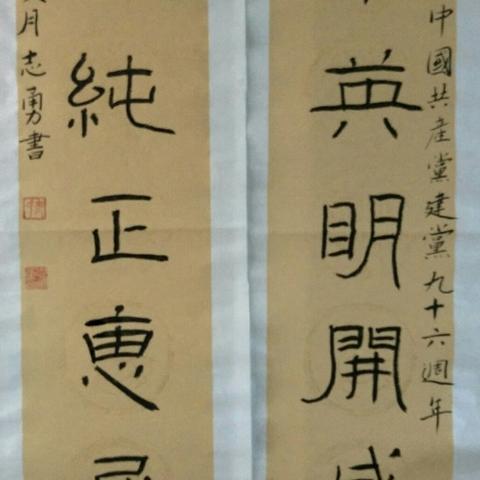 中國共產黨建黨九十六週年
英明開
純正惠
月志勇書